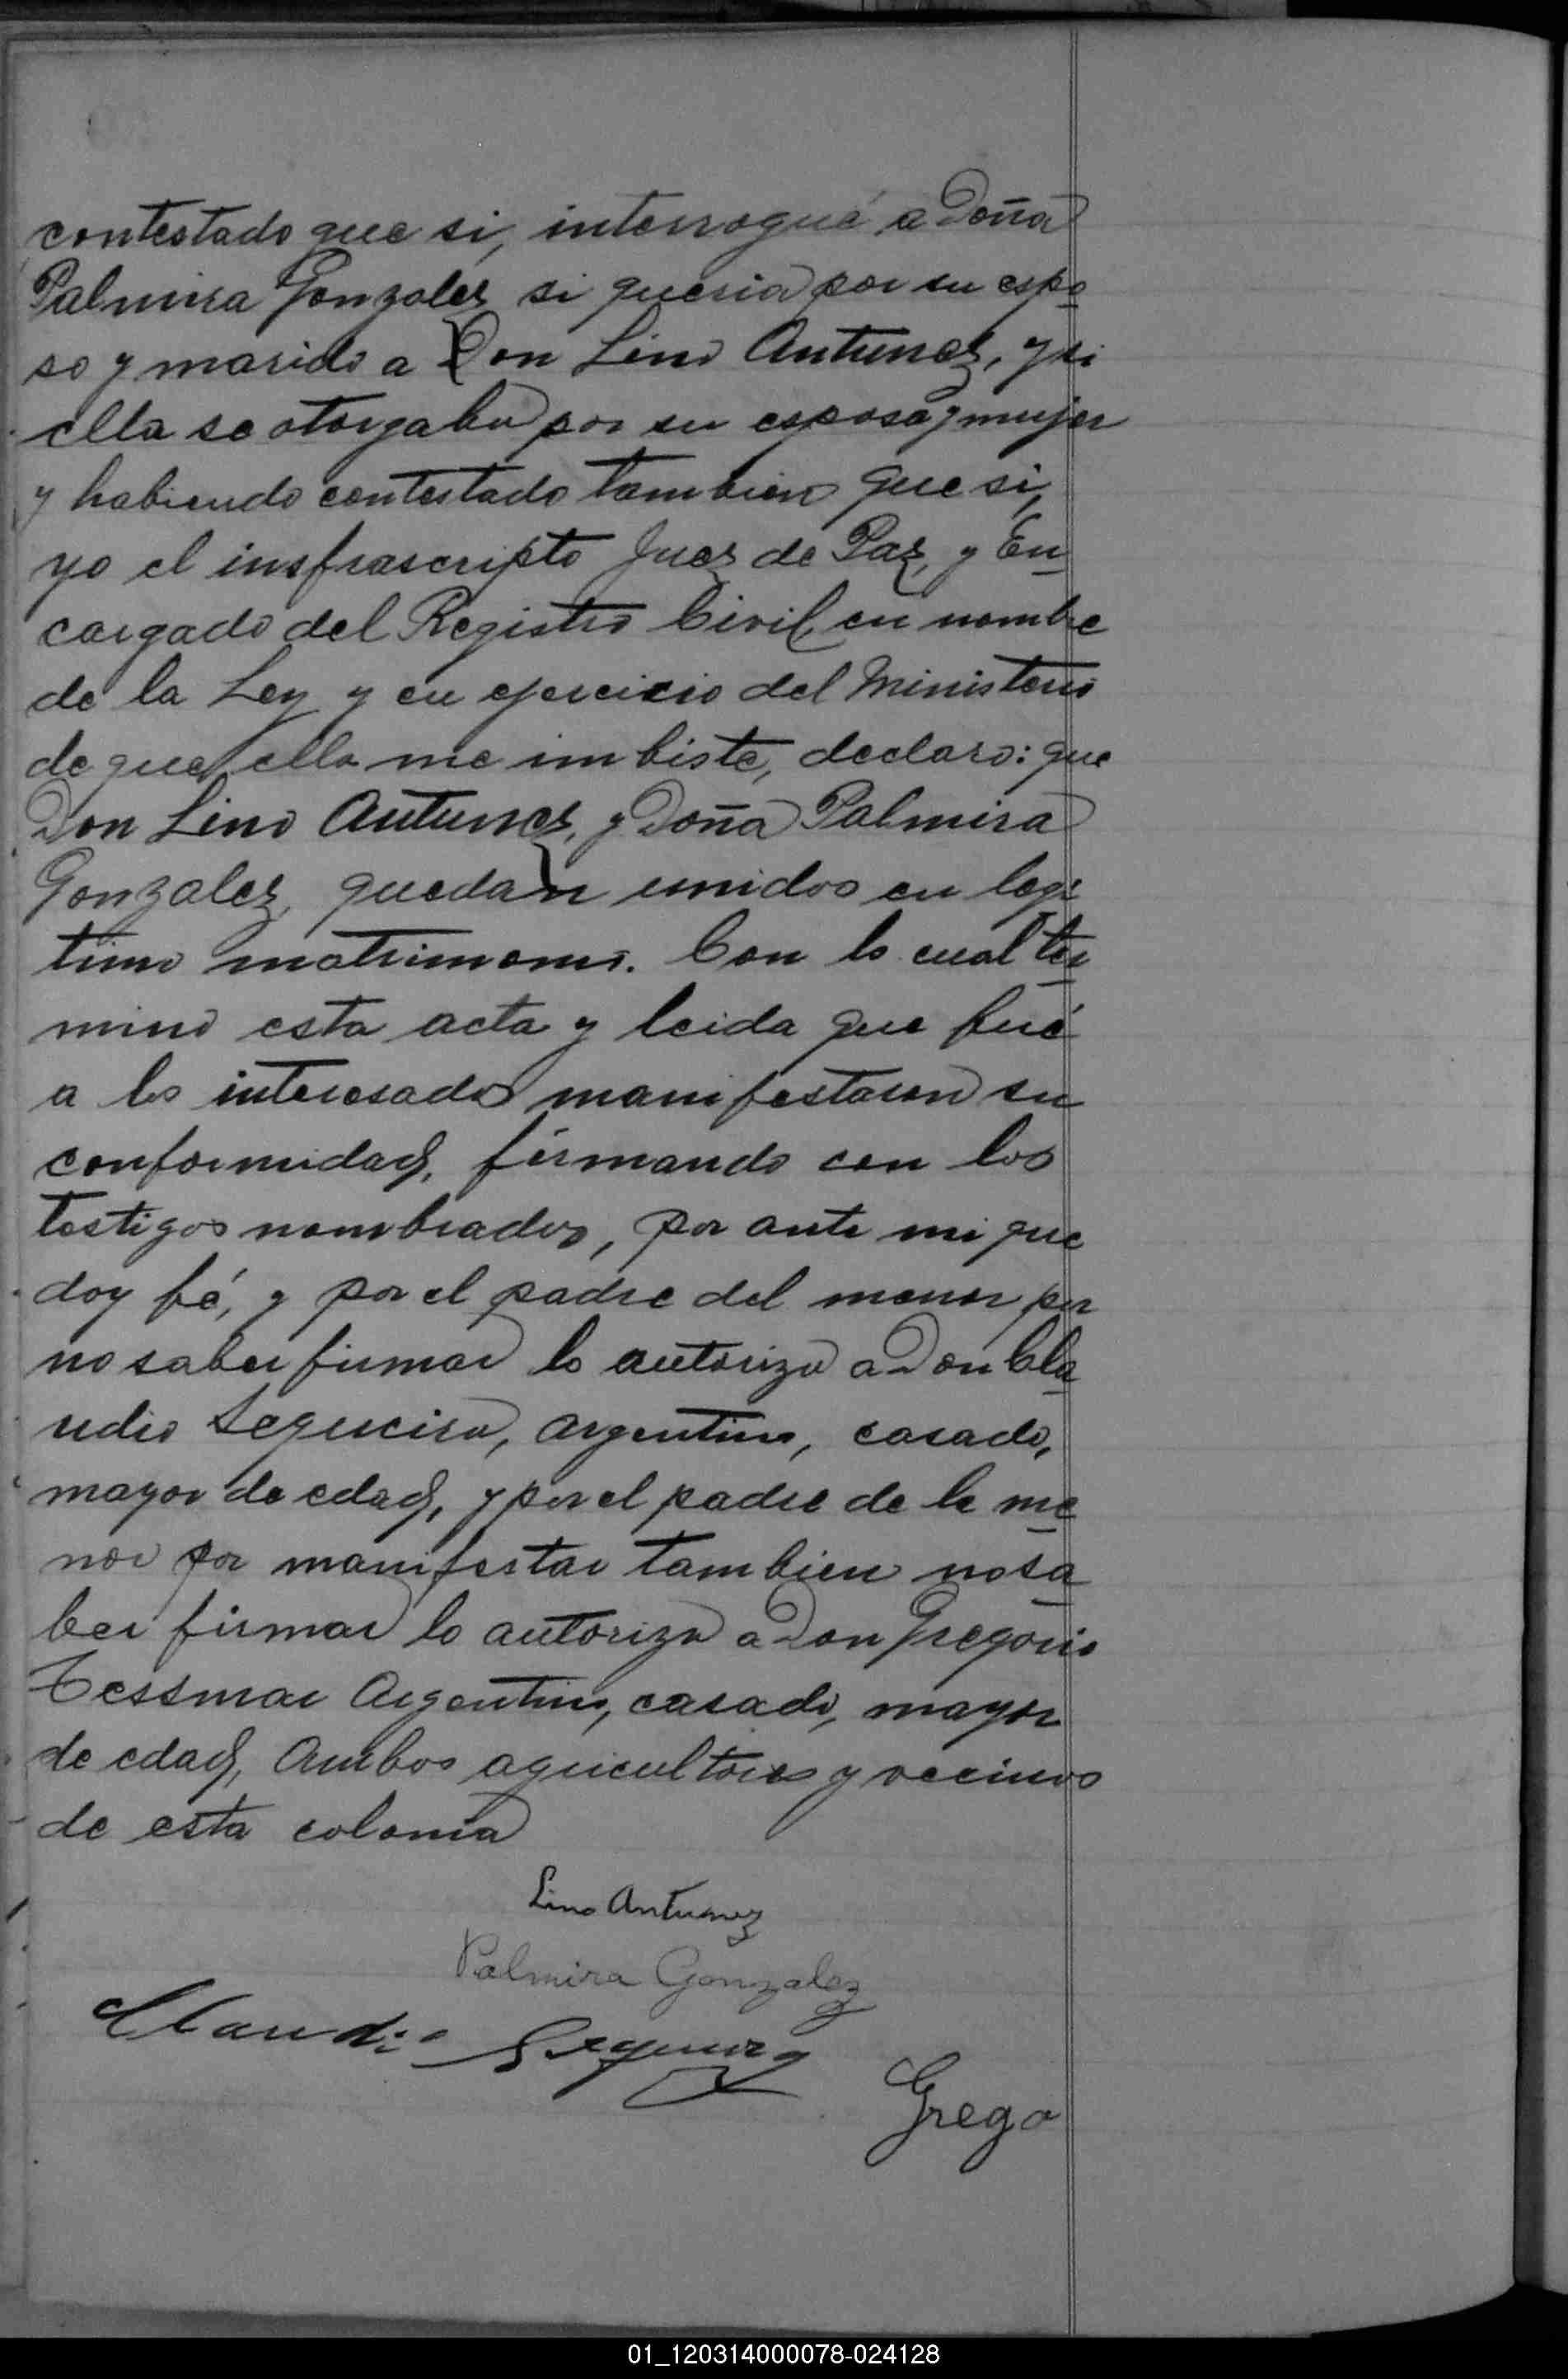 contestado que si, interrogué a Doña
Palmira Gonzalez si queria por su espo
so y marido a Don Lino Antunez, y si
ella se otorgaba por su esposa y mujer
y habiendo contestado tambien que si,
yo el insfrascripto Juez de Paz, y En
cargado del Registro Civil, en nombre
de la Ley y en ejercicio del Ministerio
de que ella me imbiste, declaro: que
Don Lino Antunez, y Doña Palmira
Gonzalez, quedan unidos en legi
timo matrimonio. Con lo cual ter
mino esta acta y leida que fué
a los interesados manifestaron su
conformidad, firmando con los
testigos nombrados, por ante mi que
doy fé, y por el padre del menor por
no saber firmar lo autoriza a Don Cla
udio Sequeira, argentino, casado,
mayor de edad, y por el padre de la me
nor por manifestar tambien no sa
ber firmar lo autoriza a Don Gregorio
Tessmar Argentino, casado, mayor
de edad, Ambos agricultores y vecinos
de esta colonia
Lino Antunez
Palmira Gonzalez
Claudio Sequeira
Grego
01_120314000078-024128